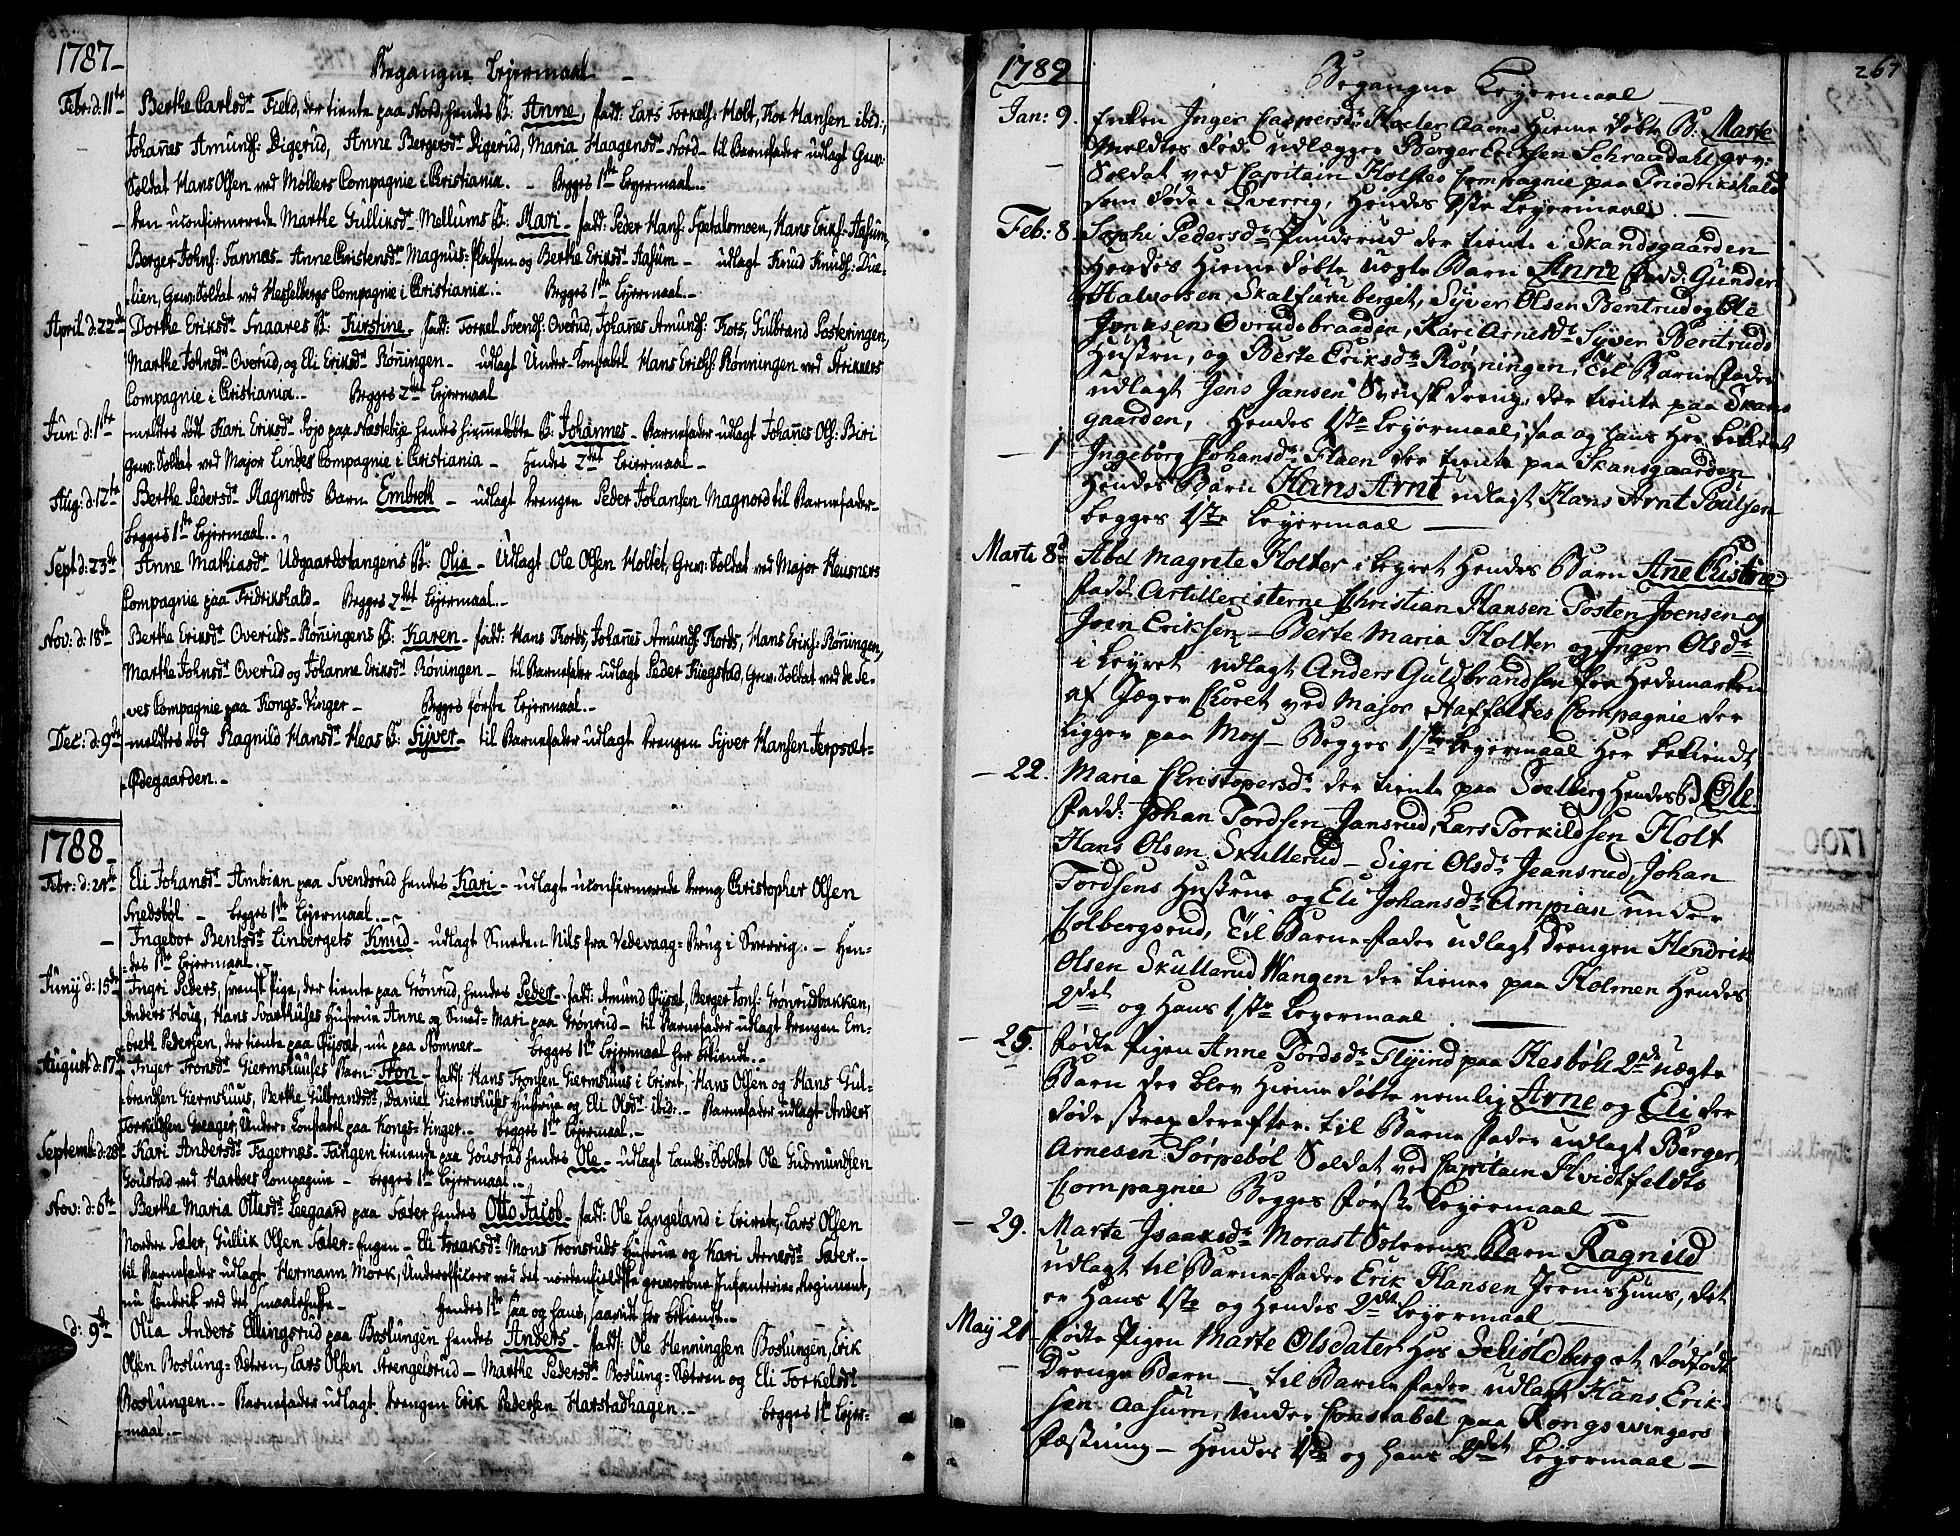 1787
Begangne Lejermaal
Febr: d: 11te Berthe Carlsdr Field, der tiente paa Nord, hendes B: Anne, fadd: Lars Torkels: Holt, Tho: Hansen ibid:,
Johañes Amunds: Digerud, Anne Bergersdr Digerud, Maria Haagensdr Nord – til Barnefader udlagt Gew:
Soldat Hans Olsen ved Møllers Compagnie i Christiania. – Begges 1ste Lejermaal –
– den uconfirmerede Marthe Gulliksdr Mellums B: Mari – fadd: Peder Hans: Spetalsmoen, Hans Eriks: Aasum,
Berger Johns: Tannæs – Anne Christensdr Magnus-Pladsen og Berthe Eriksdr Aasum – udlagt Knud Knuds: Due-
lien, Gew: Soldat ved Hesselbergs Compagnie i Christiania. Begges 1ste Lejermaal –
April d: 22de Dorthe Eriksdr Snaares B: Kirstine – fadd: Torkel Svends: Overud, Johañes Amunds: Thors, Gulbrand Posteringen,
Marthe Johnsdr Overud, og Eli Eriksdr Röningen – udlagt Under-Constabel Hans Erichs: Rønningen ved Strikners
Compagnie i Christiania. – Begges 2det Lejermaal
Jun: d: 1ste meldtes død Kari Eriksdr paa Næstebye hendes hiemedøbte B: Johañes – Barnefader udlagt Johañes Ols: Biri
Gew: Soldat ved Major Lindes Compagnie i Christiania – Hendes 2det Leiermaal –
Aug: d: 12te Berthe Pedersdr Magnords Barn Embrek – udlagt drengen Peder Johansen Magnord til Barnefader –
begges 1ste Lejermaal –
Sept: d: 23de Anne Mathiasdr Udgaardstangens B: Olia – Udlagt Ole Olsen Holtet, Gew: Soldat ved Major Heusners
Compagnie paa Fridrikshald – Begges 2det Lejermaal –
Nov: d: 18de Berthe Eriksdr Overuds-Röningens B: Karen – fadd: Hans Thords, Johañes Amunds: Thords, Hans Eriks: Röningen,
Marthe Johnsdr Overud og Johanne Eriksdr Röningen – til Barnefader udlagt Peder Kiegstad, Gew: Soldat ved de Se-
ves Compagnie paa Kongs-Vinger – Begges første Lejermaal –
Dec: d: 9de meldtes død Ragnild Hansdr Heas B: Syver – til Barnefader udlagt drengen Syver Hansen Jerpsæt-
Ødegaarden –
1788
Febr: d: 24de Eli Johansdr Ambian paa Svendsrud hendes Kari – udlagt uconfirmerede dreng Christopher Olsen
Snedsbøl – begges 1ste Lejermaal –
– Ingebor Bentsdr Linbergets Knud – udlagt Smeden Nils fra Vedevaag-Brug i Sverrig – Hen-
des 1ste Lejermaal –
Juny d: 15de Ingri Peders, svensk Pige, der tiente paa Grönrud, hendes Peder – fadd: Amund Øysæt, Berger Jons: Grönrudbakken,
Anders Houg, Hans Svarthuses Hustrue Anne og Smed-Mari paa Grönrud – til Barnefader udlagt drengen Em-
brek Pedersen, der tiente paa Øysæt, nu paa Stømner – begges 1ste Lejermaal her bekiendt –
August d: 17de Inger Tronsdr Giermshuuses Barn Tron – fadd: Hans Tronsen Giermshuus i Leiret, Hans Olsen og Hans Gul-
brandsen Giermshuus, Berthe Gulbrandsdr, Daniel Giermshuses Hustrue og Eli Olsdr ibid: – Barnefader udlagt Anders
Torkildsen Greager, Under-Constabel paa Kongs-Vinger – begges 1ste Lejermaal –
Septemb: d: 28de Kari Andersdr Fagernæs-Tangen tienende paa Goustad hendes Ole – udlagt Lands-Soldat Ole Gudmundsen
Goustad ved Harboes Compagnie – begges 1ste Lejermaal –
Nov: d: 6te Berthe Maria Ottesdr Leegaard paa Sæter hendes Otto Jacob – fadd: Ole Langeland i Leiret, Lars Olsen
Nordre Sæter, Gullik Olsen Sæter-Engen – Eli Isaaksdr Mons Tronsruds Hustrue og Kari Arnesdr Sæter –
til Barnefader udlagt Hermann Mork, Underofficeer ved det nordenfieldske geworbne Infanterie-Regiment,
nu Fenderik ved det smaalehnske – Hendes 1ste saa og hans, saavidt her bekiendt –
d: 9de Olia Anders Ellingsrud paa Boslungen hendes Anders – fadd: Ole Henningsen Boslungen, Erik
Olsen Boslung-Sætren, Lars Olsen Strengelsrud – Marthe Pedersdr Boslung-Sætren og Eli Torkelsdr
Boslungen – Barnefader udlagt drengen Erik Pedersen Harstadhagen – begges 1ste Lejer-
maal –
267
1789
Begangne Leyermaal
Jan: 9. Enken Inger Caspersdr Holter Aaens Hieme døbte B: Marte
– Meldtes død. udlægger Berger Eriksen Schraadahl gev:
Soldat ved Capitain Holstes Compagnie paa Friedrikshald
som døde i Sverrig, Hendes 1ste Leyermaal –
Feb: 8 Sophi Pedersdr Punderud der tiente i Skandsgaarden
Hendes Hieme døbte uægte Barn Anne Fadd: Gunder
Halvorsen Skalfuruberget, Syver Olsen Bentrud og Ole
Jonasen Ovrudsbraaden, Kari Arnesdr Syver Bentruds
Hustru, og Berte Eriksdr Rønningen, Til Barne Fader
udlagt Jens Jansen Svensk dreng, der tiente paa Skans
gaarden, Hendes 1ste Leyermaal, saa og hans Her bekiendt
– 1 Ingebørg Johansdr Flaen der tiente paa Skansgaarden
Hendes Barn Hans Arnt udlagt Hans Arnt Poulsen
begges 1ste Leyermaal –
Marti 8d Abel Magrete Holter i Leyret Hendes Barn Añe Cistine
– Fadd. Artilleristerne Christian Hansen Tosten Joensen og
Joen Eriksen – Berte Maria Holter og Inger Olsdr
i Leyret udlagt Anders Guldbrandsen fra Hedemarken
af Jæger Choret ved Major Staffeltes Compagnie der
ligger paa Moy – Begges 1ste Leyermaal Her bekiendt
– 22. Maria Christopersdr der tiente paa Soelberg Hendes B Ole
Fadd: Johan Tordsen Jansrud, Lars Torkildsen Holt
Hans Olsen Skullerud – Sigri Olsdr Jeansrud, Johan
Tordsens Hustrue og Eli Johansdr Ampian under
Colbergsrud, Til Barne Fader udlagt Drengen Hendrik
Olsen Skullerud Wangen der tiener paa Holmen Hendes
2det og Hans 1ste Leyermaal
– 25. Fødte Pigen Anne Tordsdr Flyind paa Hesböll 2de uægte
Barn der blev Hieme døbte nemlig Arne og Eli der
døde strax derefter. til Barne Fader udlagt Berger
Arnesen Sørpeböl Soldat ved Capitain Hvidtfeldts
Compagnie Begges første Leyermaal –
– 29. Marte Isaaksdr Morast Osterens Barn Ragnild
udlagt til Barne Fader Erik Hansen Jermshuus, det
er Hans 1ste og Hendes 2det Leyermaal –
May 21 Fødte Pigen Marte Olsdater Hos Schioldberg et dødfødt
– Drenge Barn – til Barne Fader udlagt Hans Erik-
sen Aasum, Under Constabel paa Kongswingers
Fæstning – Hendes 1ste og hans 2det Leyermaal –
1790